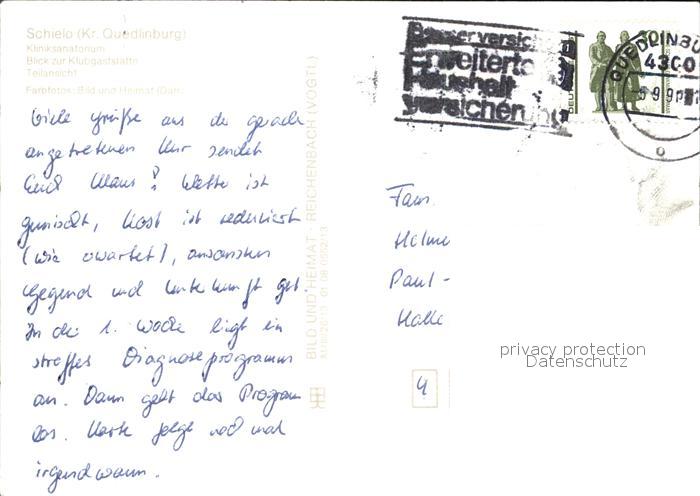 Schielo (Kr. Quedlinburg)
Kliniksanatorium
Blick zur Klubgaststätte
Teilansicht
Farbfotos: Bild und Heimat (Darr
Viele Grüße aus der gerade
angetretenen Kur sendet
Euch Klaus! Wetter ist
gemischt, Kost ist reduziert
(wie erwartet), ansonsten
Gegend und Unterkunft gut.
In der 1. Woche liegt ein
straffes Diagnoseprogramm
an. Dann geht das Program
los. Karte folgt noch mal
irgendwann.
BILD UND HEIMAT · REICHENBACH (VOGTL)
Besser versich
Erweiterte
Haushalt
versicherung
QUEDLINBU
4300
Fam.
Helmu
Paul-
Halle
4
privacy protection
Datenschutz